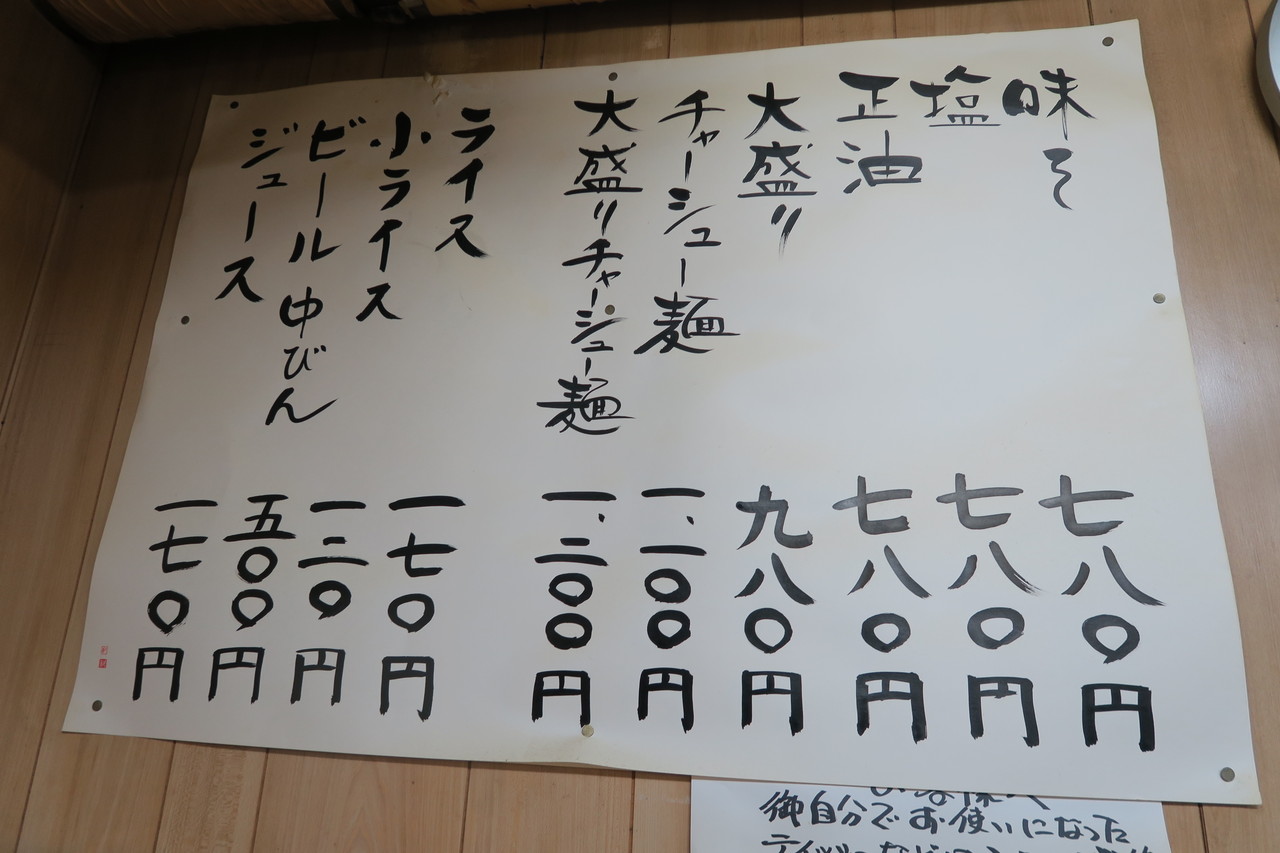 味そ 七八〇円
塩 七八〇円
正油 七八〇円
大盛り 九八〇円
チャーシュー麺 一、一〇〇円
大盛りチャーシュー麺 一、二〇〇円
ライス 一七〇円
小ライス 一二〇円
ビール中びん 五〇〇円
ジュース 一七〇円
御自分でお使いになった